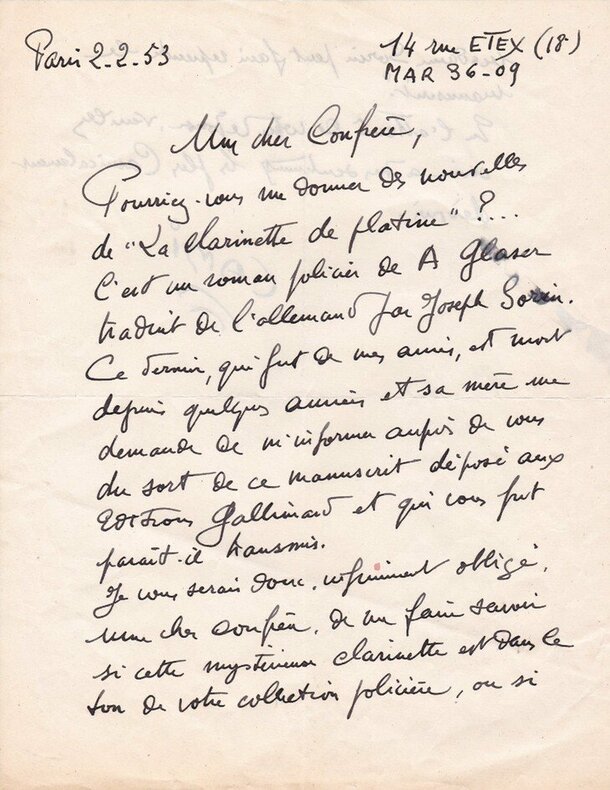 Paris 2-2-53
14 rue ETEX (18e)
MAR 36-09
Mon cher Confrère,
Pourriez-vous me donner des nouvelles
de "La clarinette de platine" ?...
C'est un roman policier de A Glaser
traduit de l'allemand par Joseph Sorin.
Ce dernier, qui fut de mes amis, est mort
depuis quelques années et sa mère me
demande de m'informer auprès de vous
du sort de ce manuscrit déposé aux
Editions Gallimard et qui vous fut
paraît-il transmis.
Je vous serais donc, infiniment obligé,
mon cher confrère, de me faire savoir
si cette mystérieuse clarinette est dans le
ton de votre collection policière, ou si